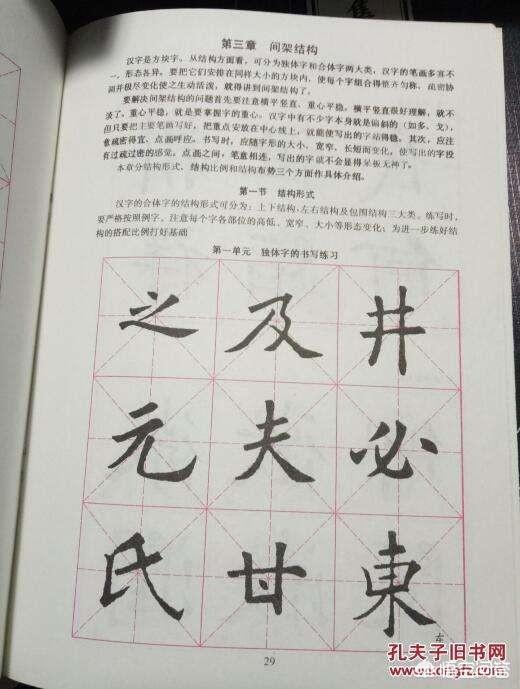 第三章 间架结构
汉字是方块字。从结构方面看，可分为独体字和合体字两大类，汉字的笔画多寡不
一，形态各异，要把它们安排在同样大小的方块内，使每个字组合得整齐匀称、疏密协
调并极尽变化使之生动活泼，就得讲到间架结构了。
要解决间架结构的问题首先要注意横平竖直、重心平稳，横平竖直很好理解，就不
谈了。重心平稳，就是要掌握字的重心。汉字中有不少字本身就是偏斜的（如多、戈），
但只要把主要笔画写好，把重点安放在中心线上，就能使写出的字站得稳。其次，应注
意疏密得宜、点画呼应。书写时，应随字形的大小、宽窄、长短而变化，使写出的字没
有过疏过密的感觉。点画之间，笔意相连，写出的字就不会显得呆板无神了。
本章分结构形式、结构比例和结构布势三个方面作具体介绍。
第一节 结构形式
汉字的合体字的结构形式可分为：上下结构、左右结构及包围结构三大类。练写时，
要严格按照例字，注意每个字各部位的高低、宽窄、大小等形态变化；为进一步练好结
构的搭配比例打好基础
第一单元 独体字的书写练习
之及井
元夫必
氏甘東
东
29
孔夫子旧书网
悟空问答